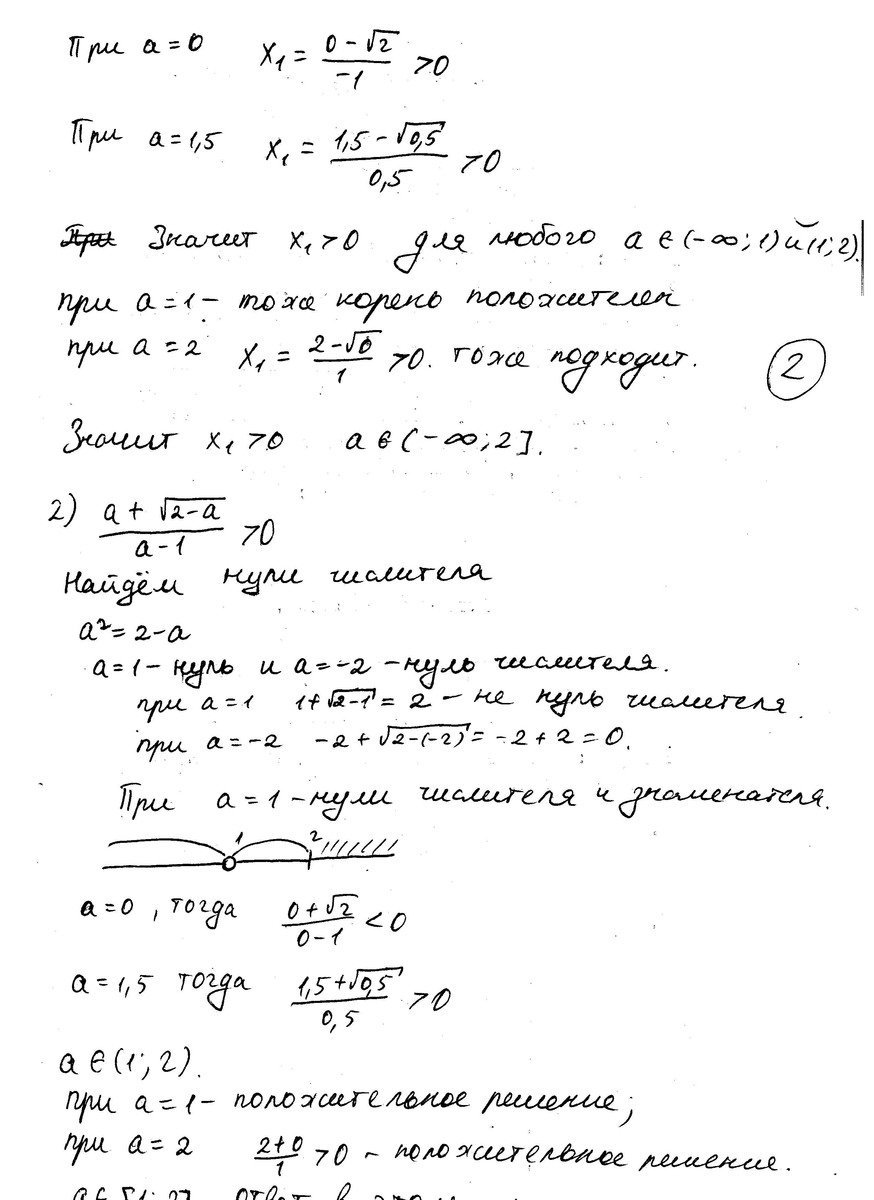 При a = 0   x₁ = (0 - √2)/(-1) > 0
При a = 1,5   x₁ = (1,5 - √0,5)/(0,5) > 0
Значит x₁ > 0 для любого a ∈ (-∞; 1) и (1; 2).
при a = 1 - тоже корень положителен
при a = 2   x₁ = (2 - √0)/1 > 0. тоже подходит.
2
Значит x₁ > 0   a ∈ (-∞; 2].
2) (a + √(2-a))/(a-1) > 0
Найдём нули числителя
a² = 2-a
a = 1 - нуль и a = -2 - нуль числителя.
при a = 1   1+√(2-1) = 2 - не нуль числителя.
при a = -2   -2 + √(2-(-2)) = -2 + 2 = 0.
При a = 1 - нули числителя и знаменателя.
1 2
a = 0, тогда (0 + √2)/(0-1) < 0
a = 1,5 тогда (1,5 + √0,5)/(0,5) > 0
a ∈ (1; 2).
при a = 1 - положительное решение;
при a = 2   (2+0)/1 > 0 - положительное решение.